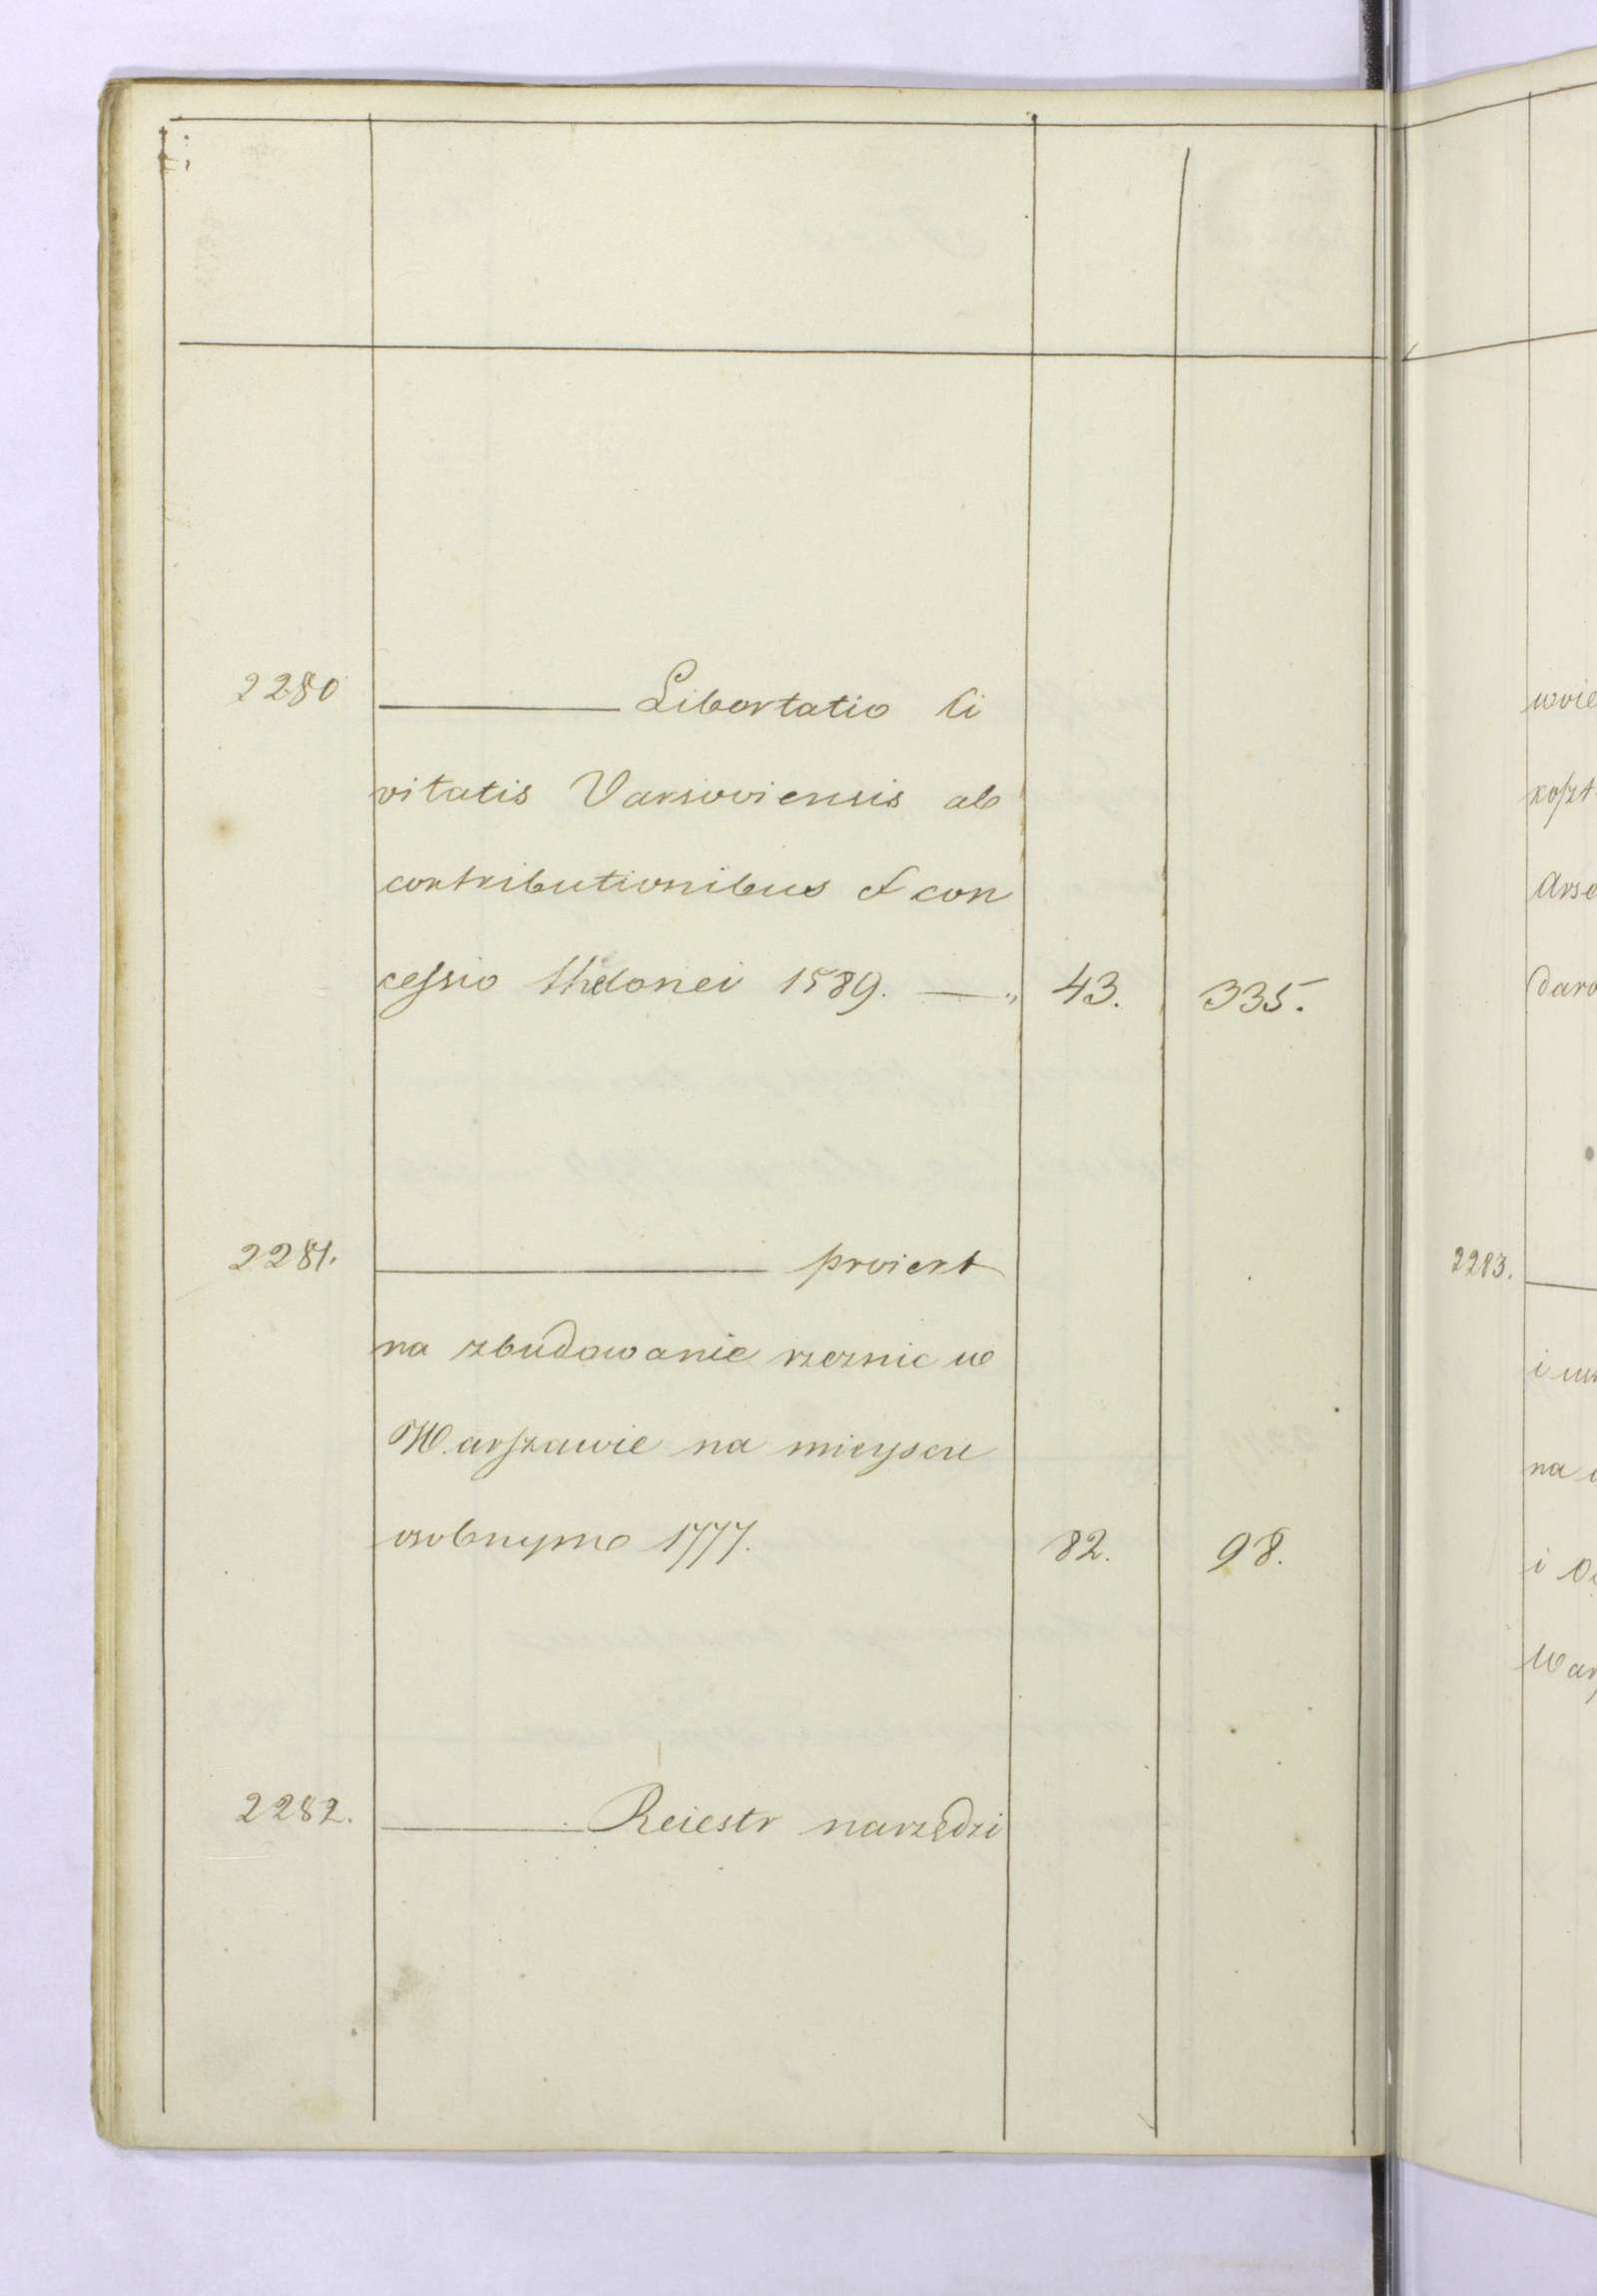 2280 ——— Libertatio Ci
vitatis Varsoviensis ab
contributionibus et con
cessio thelonei 1589. — „ 43. 335.
2281. ——— proiekt
na zbudowanie rzeznic w
Warszawie na mieyscu
osobnym 1777. 82. 98.
2282. ——— Reiestr narzędzi
2283.